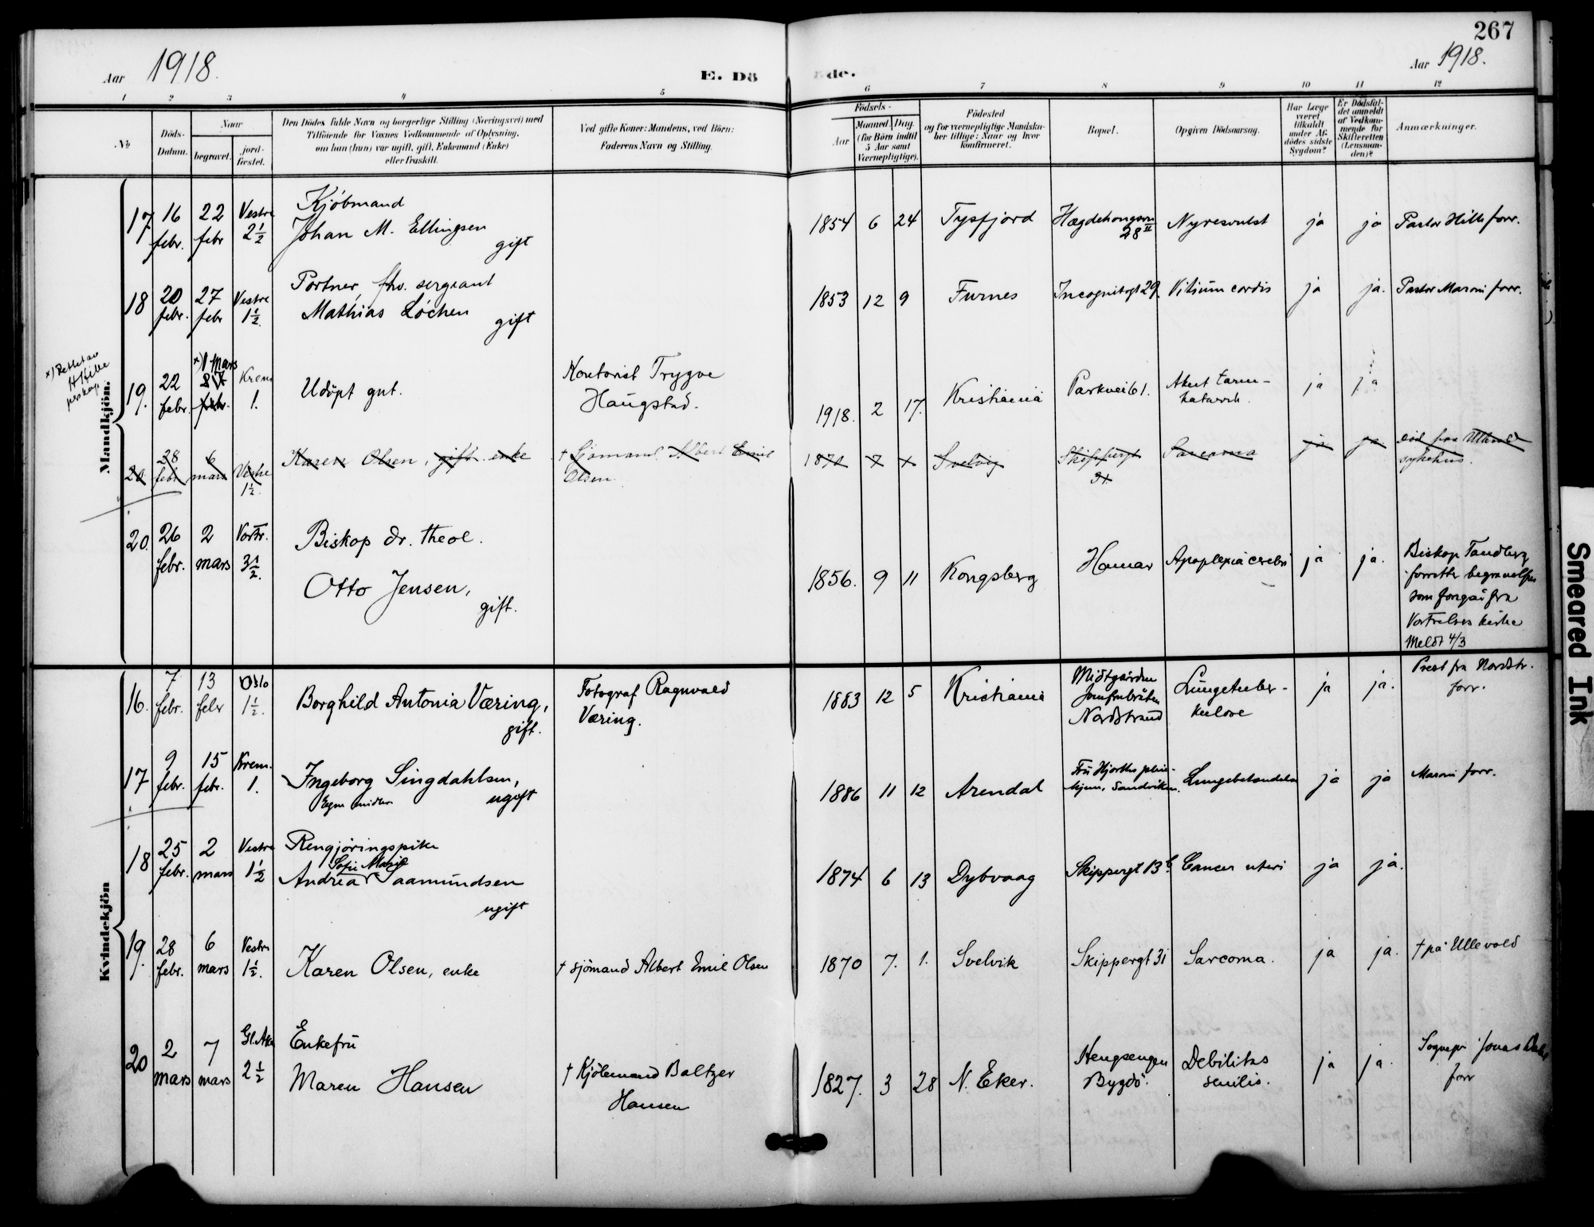 267
Aar 1918. E. Dö de. Aar 1918.
1 2 3 4 5 6 7 8 9 10 11 12
No
Döds-
Datum.
Naar
begravet.
jord-
fæstet.
Den Dödes fulde Navn og borgerlige Stilling (Næringsvei) med
Tilföiende for Voxnes Vedkommende af Oplysning,
om han (hun) var ugift, gift, Enkemand (Enke)
eller fraskilt.
Ved gifte Koner: Mandens, ved Börn:
Faderens Navn og Stilling.
Födsels-
Aar
Maaned Dag
(for Börn indtil
5 Aar samt
Værnepligtige).
Födested
og for værnepligtige Mandska-
ber tillige: Naar og hvor
konfirmeret.
Bopæl.
Opgiven Dödsaarsag.
Har Læge
været
tilkaldt
under Af-
dödes sidste
Sygdom?
Er Dödsfal-
det anmeldt
af Vedkom-
mende for
Skifteretten
(Lensman-
den)?
Anmærkninger.
Mandkjön.
17 16 22 Vestre Kjöbmand
febr. febr 2 1/2 Johan M. Ellingsen
gift
1854 6 24 Tysfjord
28 II Nyresvulst ja ja Pastor Hille forr.
18 20 27 Vestre Portner, fhv. sergeant
febr. febr 1 1/2. Mathias Löchen
gift
1853 12 9 Furnes Incognitogt 29 Vitium cordis ja ja. Pastor Maroni forr.
x) Rettet av
x) 1 Mars
19. 22 Krem
febr. febr. 1. Udöpt gut.
Kontorist Trygve
Haugstad.
1918. 2 17. Kristiania Parkvei 61. Akut tarm-
katarrh. ja ja
20 28 6 Vestre Karen Olsen, gift enke
febr mars 1 1/2.
† Sjömand Albert Emil
Olsen
1871 7 1 Svelvig Skippergt
31 Sarcoma ja ja död fra Ullevold
sykehus.
20. 26 2 Vortr. Biskop dr. theol.
febr. mars 3 1/2. Otto Jensen,
gift.
1856. 9 11 Kongsberg Hamar Apoplexia cerebri ja ja. Biskop Tandberg
forretter begravelsen
som foregår fra
Vor Frelsers kirke
Meldt 4/3
Kvindekjön
16. 7 13 Oslo Borghild Antonia Væring,
febr. febr 1 1/2. gift.
Fotograf Ragnvald
Væring.
1883 12 5 Kristiania Midtgården
Jomfrubråten
Nordstrand
Lungetuber-
kulose ja ja. Prest fra Nordstr.
forr.
17 9 15 Krem. Ingeborg Singdahlsen,
febr. febr. 1. Egne midler ugift
1886 11 12 Arendal Fru Hjorths pleie-
hjem, Sandviken. ja ja Maroni forr.
18 25 2 Vestre Rengjöringspike
febr. mars 1 1/2 Sofie Marie
Andrea Saamundsen
ugift
1874 6 13 Dybvaag Skippergt 13 b Cancer uteri ja ja.
19. 28 6 Vestre
febr. mars 1 1/2. Karen Olsen, enke
† sjömand Albert Emil Olsen
1870 7. 1. Svelvik Skippergt 31 Sarcoma. ja ja. † på Ullevold
20 2 7 Gl. Ak. Enkefru
mars mars 2 1/2 Maren Hansen
† Kjöbmand Baltzer
Hansen
1827. 3 28 N. Eker. Hengsengen
Bygdö. Debilitas
senilis. ja ja. Sognepr Jonas Dahl
forr
Smeared Ink